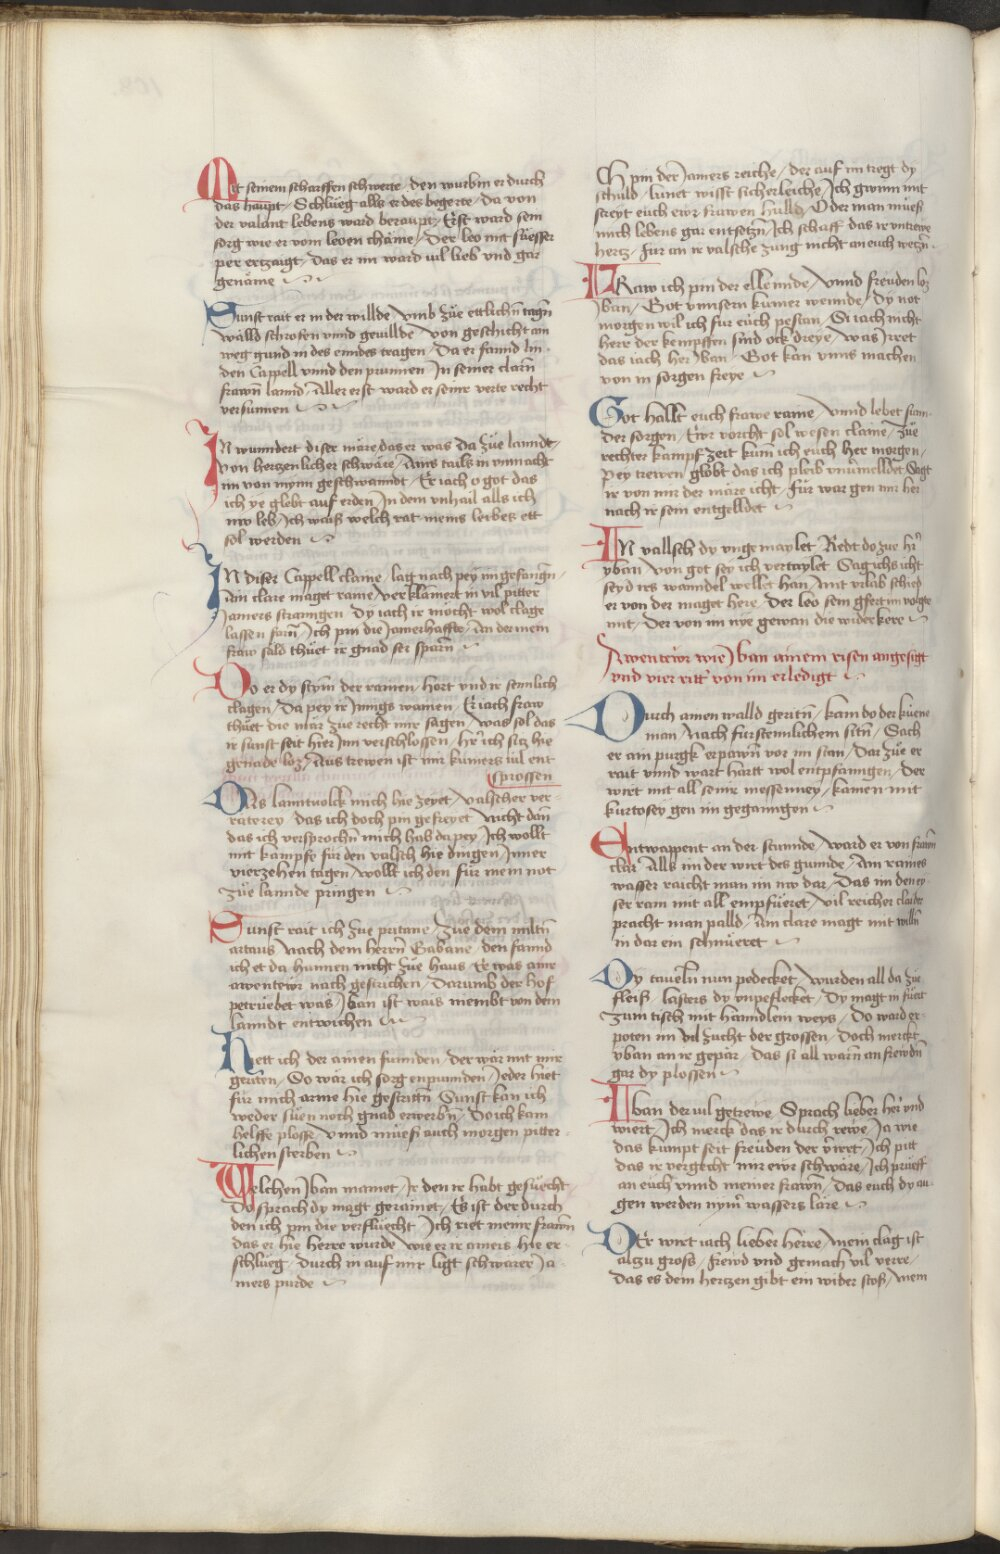 Mit seinem scharffen schwerte / den wurbm er durch
das haupt / Schlueg alls er des begerte / da von
der valant lebens ward beraupt / Erst ward sein
sorg wie er vom leoen chäme / Der leo mit süesser
per ertzaigt / das er im ward vil lieb vnd gar
genäme
Sunst rait er in der willde / vmb züe ettlichn tagn
walld schrofen vnnd gevillde / von geschicht ain
weg gund in des enndes tragen / Da er fannd lin
den Cappell vnnd den prunnen / In seiner clarn
frawn lannd / Aller erst ward er seinr verte recht
versunnen
In wunndert diser märe / das er was da züe lanndt /
von hertzenlicher schwäre / Ains tails in vnmacht
im von mynn geschwanndt / Er iach o got das
ich ye glebt auf erden / In dem vnhail alls ich
nw leb / Ich waiß welch rat meins leibes ett
sol werden
In diser Cappell claine / lag nach pey im gefangn /
Ain clare maget raine / verklamert in vil pitter
iamers stranngen / Dy iach ir möcht wol clage
lassen farn / Ich pin die iamerhaffte / An der mein
fraw säld thüet ir gnad ser sparn
Do er dy stym der rainen / hort vnd ir sennlich
clagen / Da pey ir ynnigs wainen / Er iach fraw
thüet die mär züe recht mir sagen / was sol das
ir sunst seit hier Inn verschlossen / hr ich sitz hie
genade loz / Aus trewen ist mir kumers vil ent
sprossen
Das lanntvolck mich hie zeyet / valscher ver
raterey / das ich doch pin gefreyet / Nicht dan
das ich versprochn mich hab da pey / Ich wollt
mit kampfe für den valsch hie dingen / Inner
vierzehen tagen / wollt ich den für mein not
züe lannde pringen
Sunst rait ich züe pritane / züe dem milltn
artaus / Nach dem herrn Gabane / den fannd
ich et da hannen nicht züe haus / Er was ainr
awentewr nach gestrichen / Darumb der hof
petrüebet was / Iban ist wais niembt von dem
lanndt entwichen
Hett ich der ainen funnden / der wär mit mir
geriten / So wär ich sorg enpunnden / Ieder hiet
für mich arme hie gestrittn / Sunst kan ich
weder süen noch gnad erwerbn / Do ich kam
helffe plosse / vnnd müesß auch morgen pitter
lichen sterben
Welchen Iban mainet / Ir den ir habt gesüecht /
Do sprach dy magt gerainet / Es ist der durch
den ich pin die verflüecht / Ich riet meinr frawn
das er hie herre wurde / wie er ir amers hie er
schlüeg / durch in auf mir ligt schwarer Ia
mers purde
Ich pin der Iamers reiche / der auf im tregt dy
schuld / lunet wisst sicherleiche / Ich gwinn mit
streyt euch ewr frawen hulld / Oder man müesß
mich lebens gar entsetzn / Ich schaff das ir vntrewe
hertz / für an ir valsche zung nicht an euch wetzn
Fraw ich pin der ellennde / vnnd freuden loz
Iban / Got vnnsern kumer wennde / Dy not
morgen wil ich für euch pestan / Si iach nicht
herr der kempffen sind ock dreye / was Irret
das iach her Iban / Got kan vnns machen
von in sorgen freye
Got hallt euch frawe raine / vnnd lebet sunn
der sorgen / Ewr vorcht sol wesen claine / züe
rechter kampf zeit kum ich euch her morgen /
Pey trewen globt das ich pleib vnuermelldet / Sagt
ir von mir der märe icht / für war gen mir her
nach ir sein entgelldet
In vallsch dy vnge may let / Redt do züe hr
yban / von got sey ich vertaylet / Sag ichs icht
seyd irs wanndel wellet han / mit vrlab schied
er von der maget here / Der leo sein gfert im volgte
mit / Der von im nye gewan die widerkere
Awentewr wie Iban ainem risen angesigt
vnd vier ritter von im erledigt
Durch ainen walld geritn / kam do der küene
man / Nach fürstennlichem sitn / Sach
er ain purgk erpawn vor im stan / Dar züe er
rait vnnd wart hartt wol entpfanngen / Der
wirt mit all seinr messenney / kamen mit
kurtosey gen im geganngen
Entwappent an der stunnde / ward er von frawn
clar / Alls im der wirt des gunnde / Ain raines
wasser raicht man im nw dar / Das im den ey
ser ram mit all empfüeret / vil reicher claider
pracht man palld / Ain clare magt mit willn
in dar ein schnüeret
Dy taueln nun pedecket / wurden all da züe
fleiß / lasters dy vnpeflecket / Dy magt in füert
zum tisch mit hanndlein weys / Do ward er
poten im vil zucht der grossen / Doch merckt
yban an ir gepär / Das si all warn an frewdn
gar dy plossen
Iban der vil getrewe / Sprach lieber her vnd
wiert / Ich merck das ir durch rewe / Ia wie
das kumpt seit freuden der virret / Ich pitt
das ir vergecht mir ewr schwäre / Ich prüeff
an euch vnnd meiner frawn / Das euch dy au
gen werden nym wassers läre
Der wirt iach lieber herre / mein clag ist
alzu groß / frewd vnd gemach vil verre /
Das es dem hertzen gibt ein wider stoß / mein